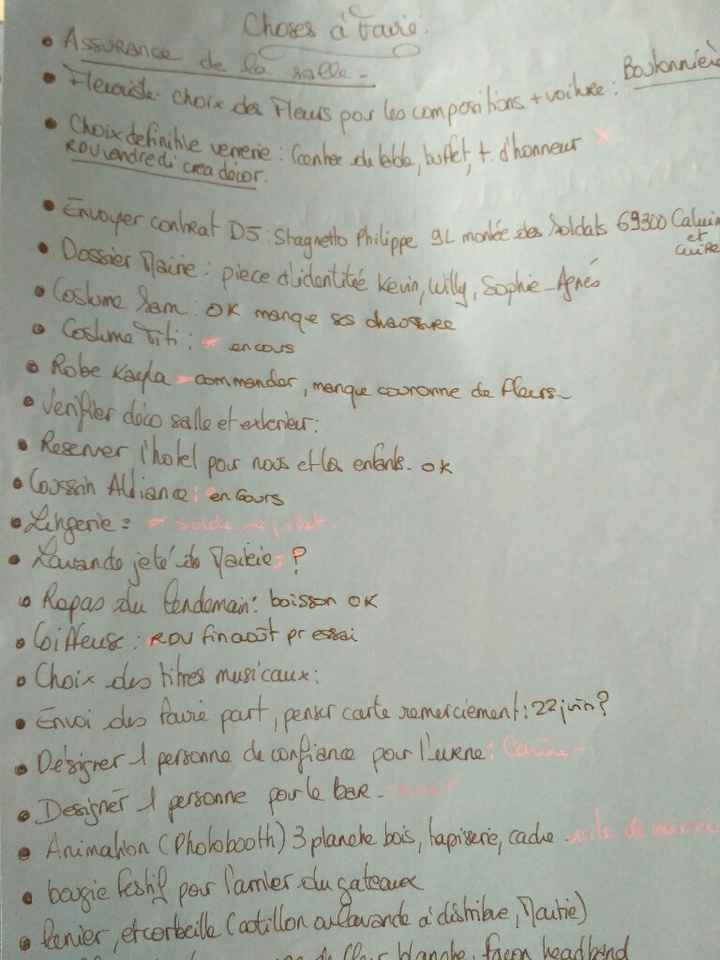 Choses à faire.
• Assurance de la salle -
• Fleuriste choix des Fleurs pour les compositions + voiture : Boutonnière
• Choix définitive verrerie : Contrée de table, buffet, + d'honneur
RDV vendredi créa décor.
• Envoyer contrat DJ : Stagnetto Philippe 9L montée des Soldats 69300 Caluire
et
Cuire
• Dossier Mairie : pièce d'identitée Kevin, Willy, Sophie - Agnès
• Costume Sam : OK manque ses chaussure
• Costume Titi : en cours
• Robe Kayla commander, manque couronne de fleurs -
• Verifier déco salle et exterieur :
• Reserver l'hotel pour nous et les enfants. ok
• Coussin Alliance : en cours
• Lingerie :
• Lavande jeté de Mairie : ?
• Repas du lendemain : boisson OK
• Coiffeuse : RDV fin août pr essai
• Choix des titres musicaux :
• Envoi des faire part, penser carte remerciement : 22 juin ?
• Désigner 1 personne de confiance pour l'urne :
• Designer 1 personne pour le bar -
• Animation (Photobooth) 3 planche bois, tapisserie, cadre
• bougie festif pour l'arriver du gateaux
• Panier, et corbeille (cotillon ou lavande à distribue, Mairie)
blanche, façon headband